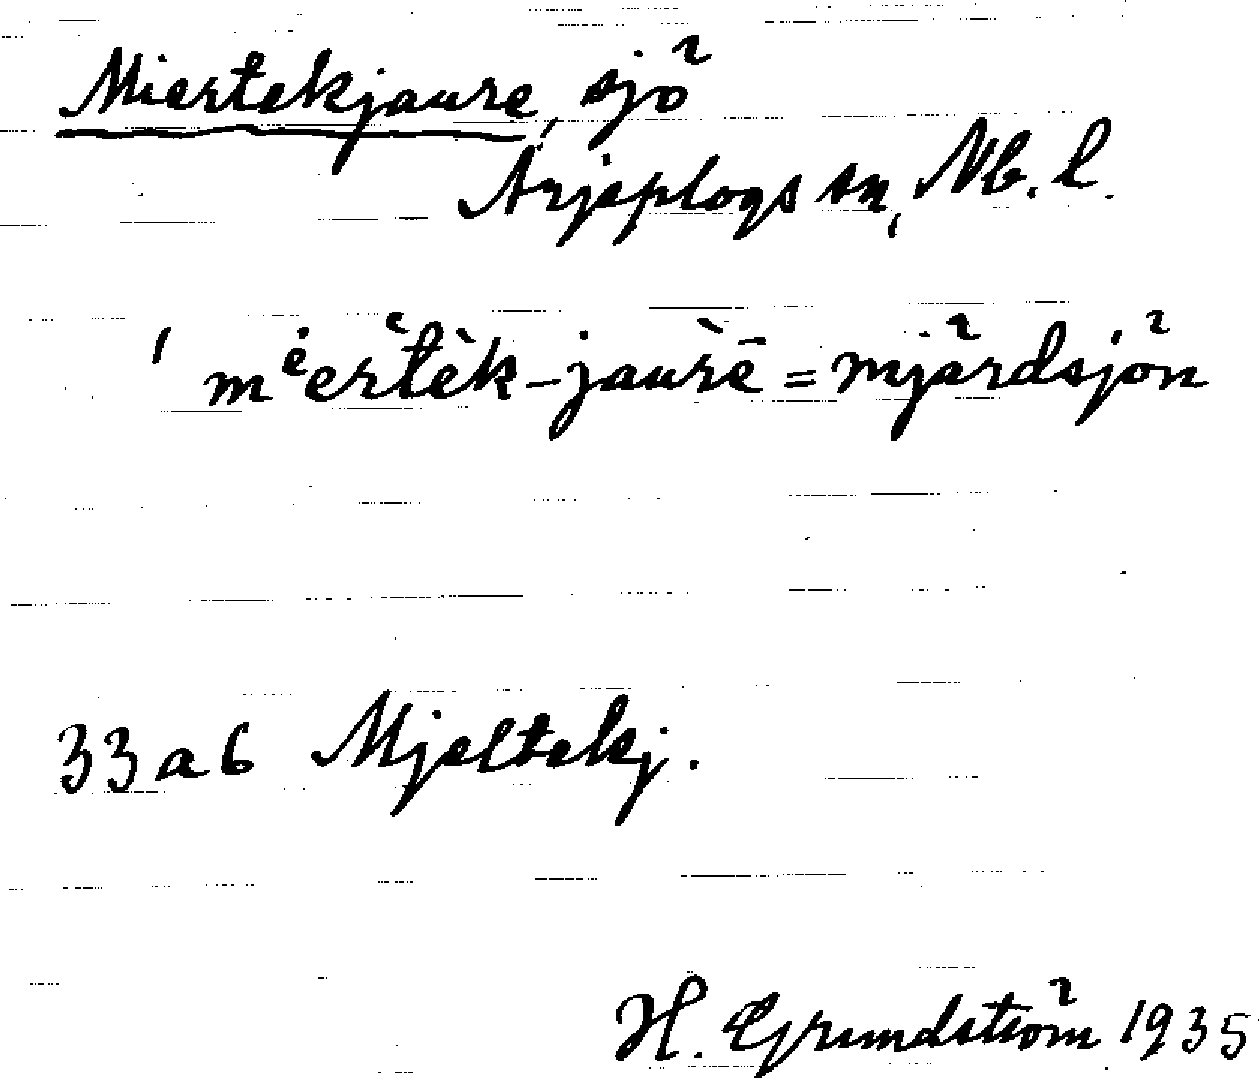 Miertekjaure, sjö
Arjeplogs sn, Nb. l.
' mėertèk-jaurē = mjärdsjön
33 a 6 Mjeltekj.
H. Grundström 1935